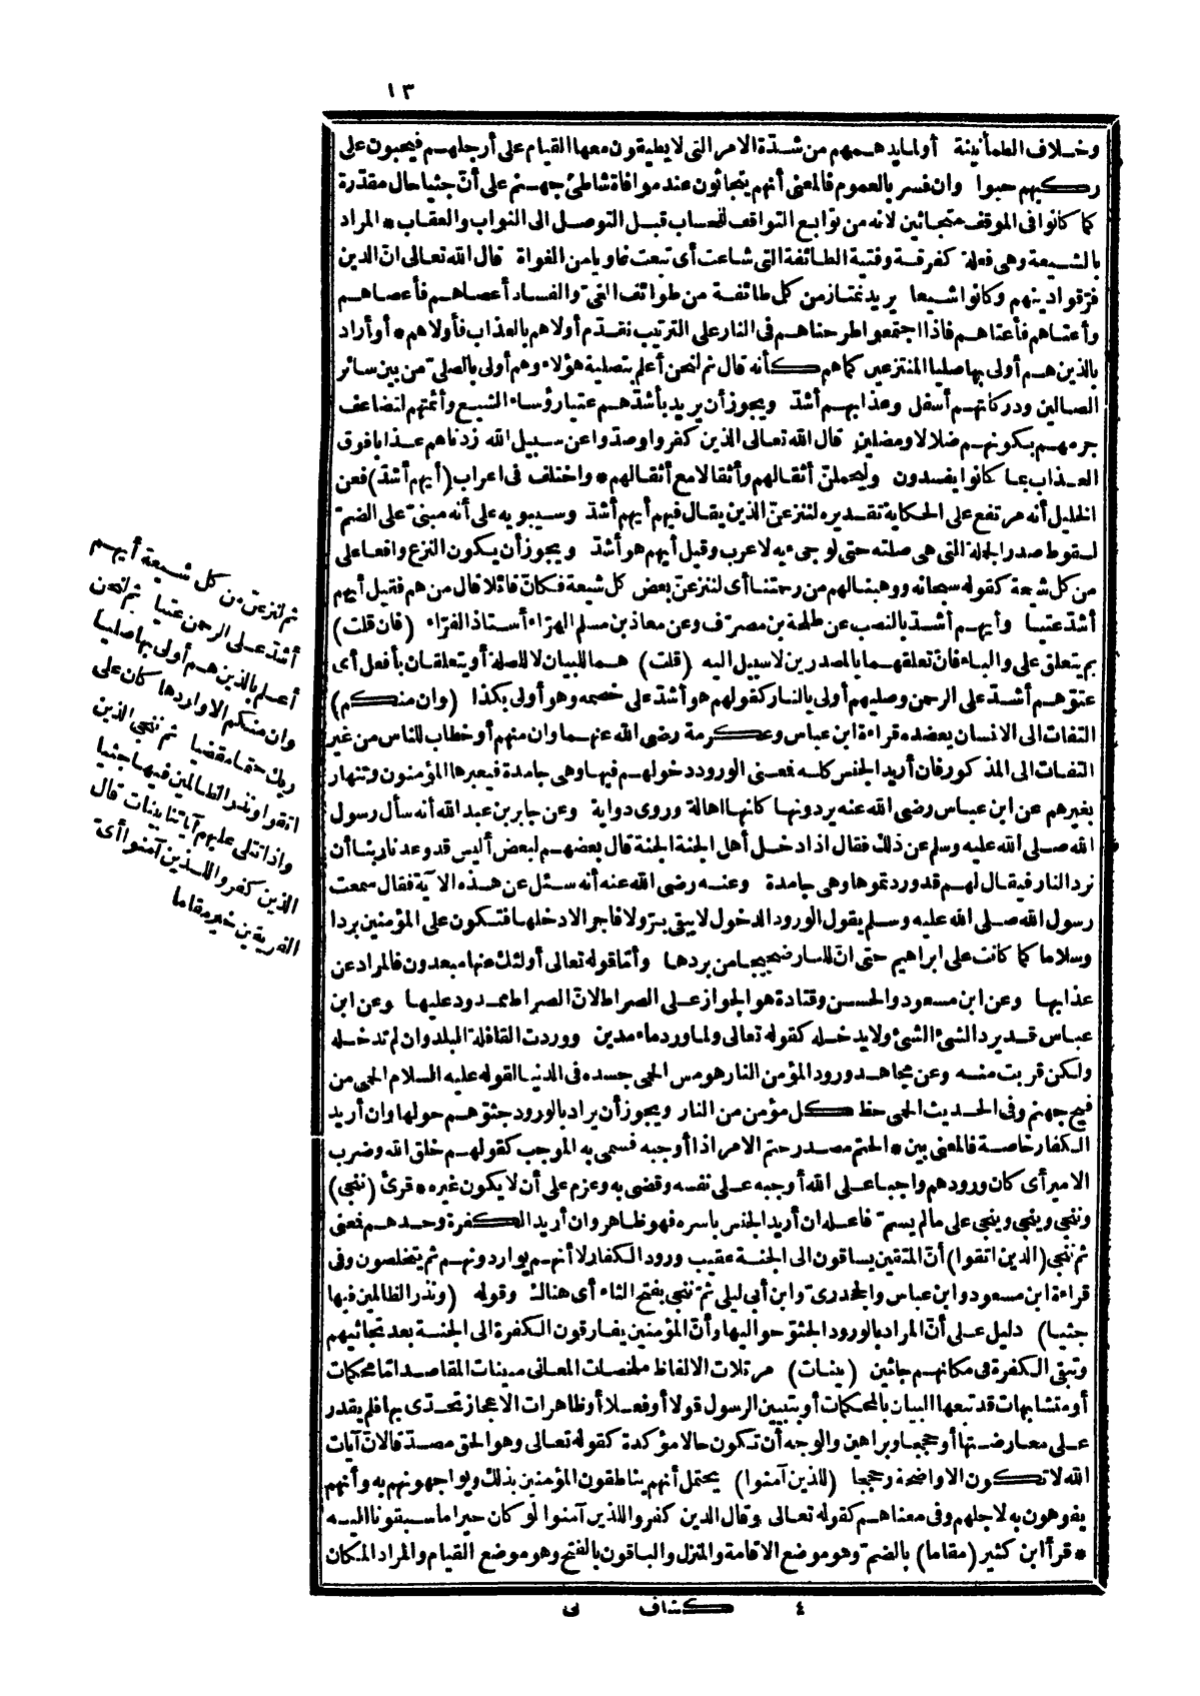 ١٣
وخلاف الطمأنينة أولما يدهمهم من شدّة الامر التى لا يطيقون معها القيام على أرجلهم فيحبون على
ركبهم حبوا وان فسر بالعموم فالمعنى أنهم يتجاثون عند موافاة شاطئ جهنم على أنّ جثيا حال مقدّرة
كما كانوا فى الموقف متجاثين لانه من توابع التواقف للحساب قبل التوصل الى الثواب والعقاب * المراد
بالشيعة وهى فعلة كفرقة وفتية الطائفة التى شاعت أى تبعت غاويا من الغواة قال الله تعالى انّ الذين
فرّقوا دينهم وكانوا شيعا يريد نمتاز من كل طائفة من طوائف الغىّ والفساد أعصاهم فأعصاهم
وأعتاهم فأعتاهم فاذا اجتمعوا طرحناهم فى النار على الترتيب نقدّم أولاهم بالعذاب فأولاهم * أوأراد
بالذين هم أولى بها صليا المنتزعين كماهم كأنه قال ثم لنحن أعلم بتصلية هؤلاء وهم أولى بالصلىّ من بين سائر
الصالين ودركاتهم أسفل وعذابهم أشدّ ويجوز أن يريد بأشدّهم عتيا رؤساء الشيع وأئمتهم لتضاعف
جرمهم بكونهم ضلالا ومضلين قال الله تعالى الذين كفروا وصدّوا عن سبيل الله زدناهم عذابا فوق
العذاب بما كانوا يفسدون وليحملنّ أثقالهم وأثقالا مع أثقالهم * واختلف فى اعراب (أيهم أشدّ) فعن
الخليل أنه مرتفع على الحكاية تقديره لننزعنّ الذين يقال فيهم أيهم أشدّ وسيبويه على أنه مبنىّ على الضمّ
لسقوط صدر الجملة التى هى صلته حتى لو جىء به لاعرب وقيل أيهم هو أشدّ ويجوز أن يكون النزع واقعا على
من كل شيعة كقوله سبحانه ووهبنا لهم من رحمتنا أى لننزعنّ بعض كل شيعة فكأنّ قائلا قال من هم فقيل أيهم
أشدّ عتيا وأيهم أشدّ بالنصب عن طلحة بن مصرّف وعن معاذ بن مسلم الهرّاء أستاذ الفرّاء (فان قلت)
بم يتعلق على والباء فانّ تعلقهما بالمصدرين لا سبيل اليه (قلت) هما للبيان لا للصلة أو يتعلقان بأفعل أى
عتوّهم أشدّ على الرحمن وصليهم أولى بالنار كقولهم هو أشدّ على خصمه وهو أولى بكذا (وان منكم)
التفات الى الانسان يعضده قراءة ابن عباس وعكرمة رضى الله عنهما وان منهم أو خطاب للناس من غير
التفات الى المذكور فان أريد الجنس كله فمعنى الورود دخولهم فيها وهى جامدة فيعبرها المؤمنون وتنهار
بغيرهم عن ابن عباس رضى الله عنه يردونها كأنها اهالة وروى دواية وعن جابر بن عبد الله أنه سأل رسول
الله صلى الله عليه وسلم عن ذلك فقال اذا دخل أهل الجنة الجنة قال بعضهم لبعض أليس قد وعدنا ربنا أن
نرد النار فيقال لهم قد وردتموها وهى جامدة وعنه رضى الله عنه أنه سئل عن هذه الآية فقال سمعت
رسول الله صلى الله عليه وسلم يقول الورود الدخول لا يبقى برّ ولا فاجر الا دخلها فتكون على المؤمنين بردا
وسلاما كما كانت على ابراهيم حتى انّ للنار ضجيجا من بردها وأمّا قوله تعالى أولئك عنها مبعدون فالمراد عن
عذابها وعن ابن مسعود والحسن وقتادة هو الجواز على الصراط لانّ الصراط ممدود عليها وعن ابن
عباس قد يرد الشئ الشئ ولا يدخله كقوله تعالى ولما ورد ماء مدين ووردت القافلة البلد وان لم تدخله
ولكن قربت منه وعن مجاهد ورود المؤمن النار هو مس الحمى جسده فى الدنيا لقوله عليه السلام الحمى من
فيح جهنم وفى الحديث الحمى حظ كل مؤمن من النار ويجوز أن يراد بالورود جثوّهم حولها وان أريد
الكفار خاصة فالمعنى بين * الحتم مصدر حتم الامر اذا أوجبه فسمى به الموجب كقولهم خلق الله وضرب
الامير أى كان ورودهم واجبا على الله أوجبه على نفسه وقضى به وعزم على أن لا يكون غيره * قرئ (ننجى)
وننجى وينجى وينجى على مالم يسمّ فاعله ان أريد الجنس باسره فهو ظاهر وان أريد الكفرة وحدهم فمعنى
ثم ننجى (الذين اتقوا) أنّ المتقين يساقون الى الجنة عقيب ورود الكفار لا أنهم يواردونهم ثم يتخلصون وفى
قراءة ابن مسعود وابن عباس والجحدرىّ وابن أبى ليلى ثمّ ننجى بفتح الثاء أى هناك وقوله (ونذر الظالمين فيها
جثيا) دليل على أنّ المراد بالورود الجثوّ حواليها وأنّ المؤمنين يفارقون الكفرة الى الجنة بعد تجاثيهم
وتبقى الكفرة فى مكانهم جاثين (بينات) مرتلات الالفاظ ملخصات المعانى مبينات المقاصد امّا محكمات
أو متشابهات قد تبعها البيان بالمحكمات أو بتبيين الرسول قولا أو فعلا أو ظاهرات الاعجاز تحدّى بها فلم يقدر
على معارضتها أو حججا وبراهين والوجه أن تكون حالا مؤكدة كقوله تعالى وهو الحق مصدّقا لانّ آيات
الله لا تكون الا واضحة وحججا (للذين آمنوا) يحتمل أنهم يناطقون المؤمنين بذلك ويواجهونهم به وأنهم
يفوهون به لاجلهم وفى معناهم كقوله تعالى وقال الذين كفروا للذين آمنوا لو كان خيرا ما سبقونا اليه
* قرأ ابن كثير (مقاما) بالضمّ وهو موضع الاقامة والمنزل والباقون بالفتح وهو موضع القيام والمراد المكان
ثم لننزعنّ من كل شيعة أيهم
أشدّ على الرحمن عتيا ثم لنحن
أعلم بالذين هم أولى بها صليا
وان منكم الا واردها كان على
ربك حتما مقضيا ثم ننجى الذين
اتقوا ونذر الظالمين فيها جثيا
واذا تتلى عليهم آياتنا بينات قال
الذين كفروا للذين آمنوا أىّ
الفريقين خير مقاما
٤ كشاف نى